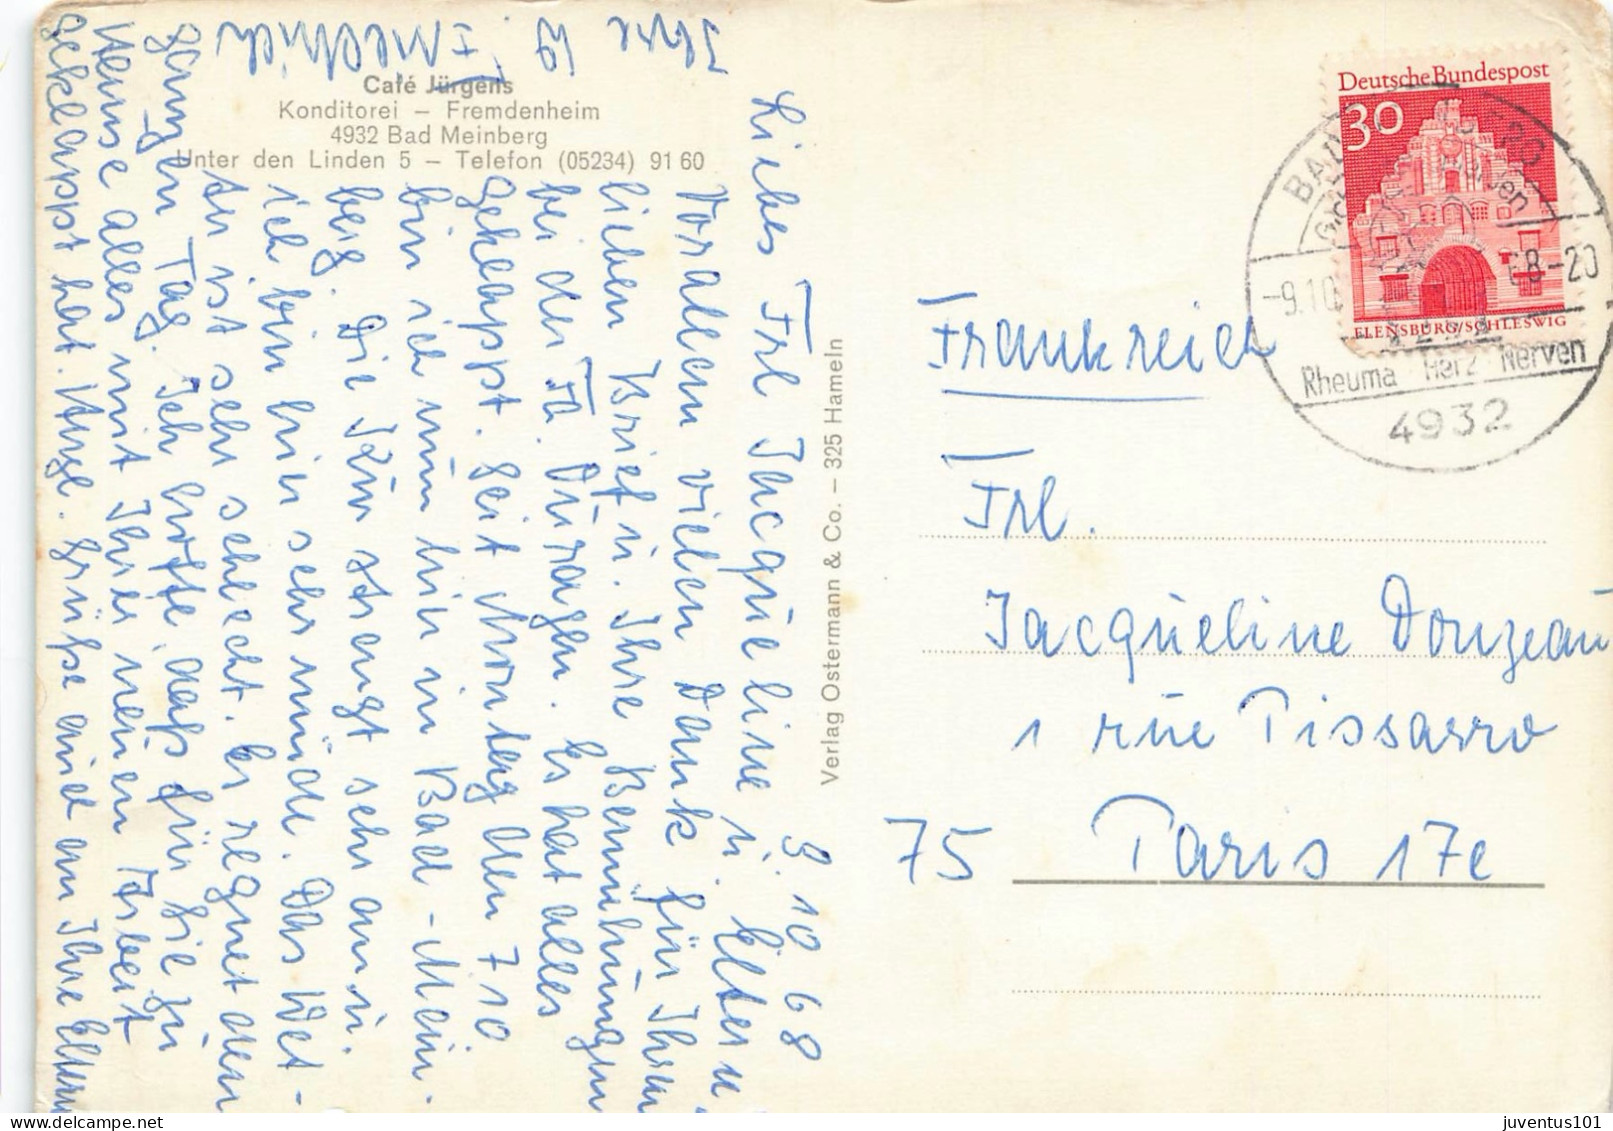 Café Jürgens
Konditorei – Fremdenheim
4932 Bad Meinberg
Unter den Linden 5 – Telefon (05234) 91 60
9 10 68
Liebes Frl Jacqueline u. Eltern
Vorallem vielen Dank für Ihren
lieben Brief u. Ihre Bemühungen
bei der Fa. Es hat alles
geklappt. Seit Montag den 7 10
bin ich nun hier in Bad-Mein-
berg. Die Kur strengt sehr an u.
ich bin hier sehr müde. Das Wet-
ter ist sehr schlecht. Es regnet den
ganzen Tag. Ich hoffe, daß für Sie
alles mit Ihrer neuen Arbeit
geklappt hat. Grüße auch an Ihre Eltern
Ihre
Verlag Ostermann & Co. – 325 Hameln
Deutsche Bundespost
30
FLENSBURG/SCHLESWIG
BAD
-9.10
68-20
Rheuma Herz Nerven
4932
Frankreich
Frl.
Jacqueline Douzeau
1 rue Pissarro
75 Paris 17e
juventus101